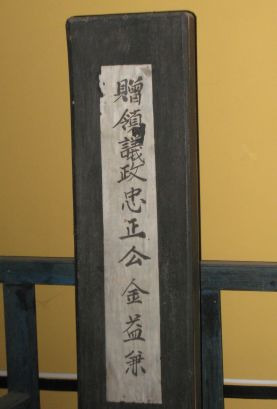 贈領議政忠正公金益兼